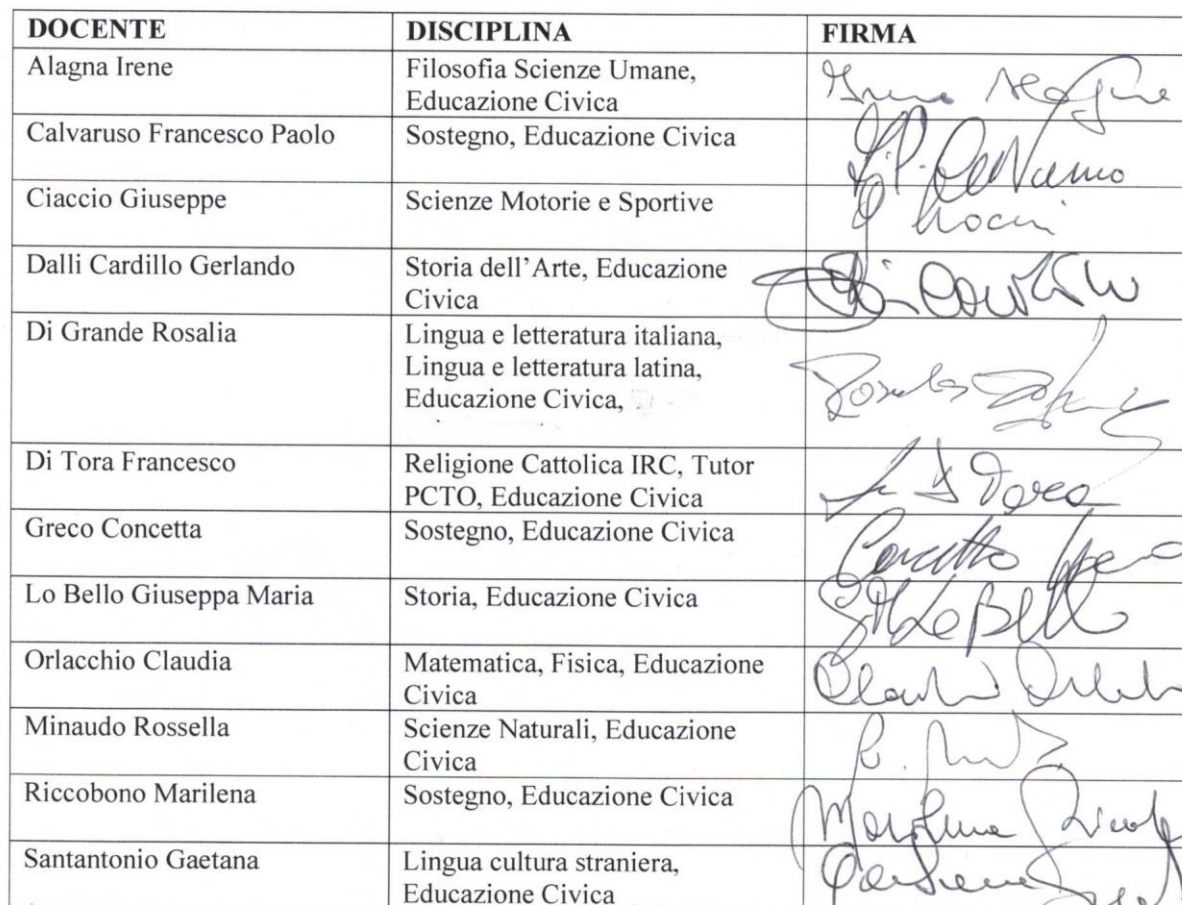 DOCENTE DISCIPLINA FIRMA
Alagna Irene Filosofia Scienze Umane,
Educazione Civica
Calvaruso Francesco Paolo Sostegno, Educazione Civica
Ciaccio Giuseppe Scienze Motorie e Sportive
Dalli Cardillo Gerlando Storia dell'Arte, Educazione
Civica
Di Grande Rosalia Lingua e letteratura italiana,
Lingua e letteratura latina,
Educazione Civica,
Di Tora Francesco Religione Cattolica IRC, Tutor
PCTO, Educazione Civica
Greco Concetta Sostegno, Educazione Civica
Lo Bello Giuseppa Maria Storia, Educazione Civica
Orlacchio Claudia Matematica, Fisica, Educazione
Civica
Minaudo Rossella Scienze Naturali, Educazione
Civica
Riccobono Marilena Sostegno, Educazione Civica
Santantonio Gaetana Lingua cultura straniera,
Educazione Civica